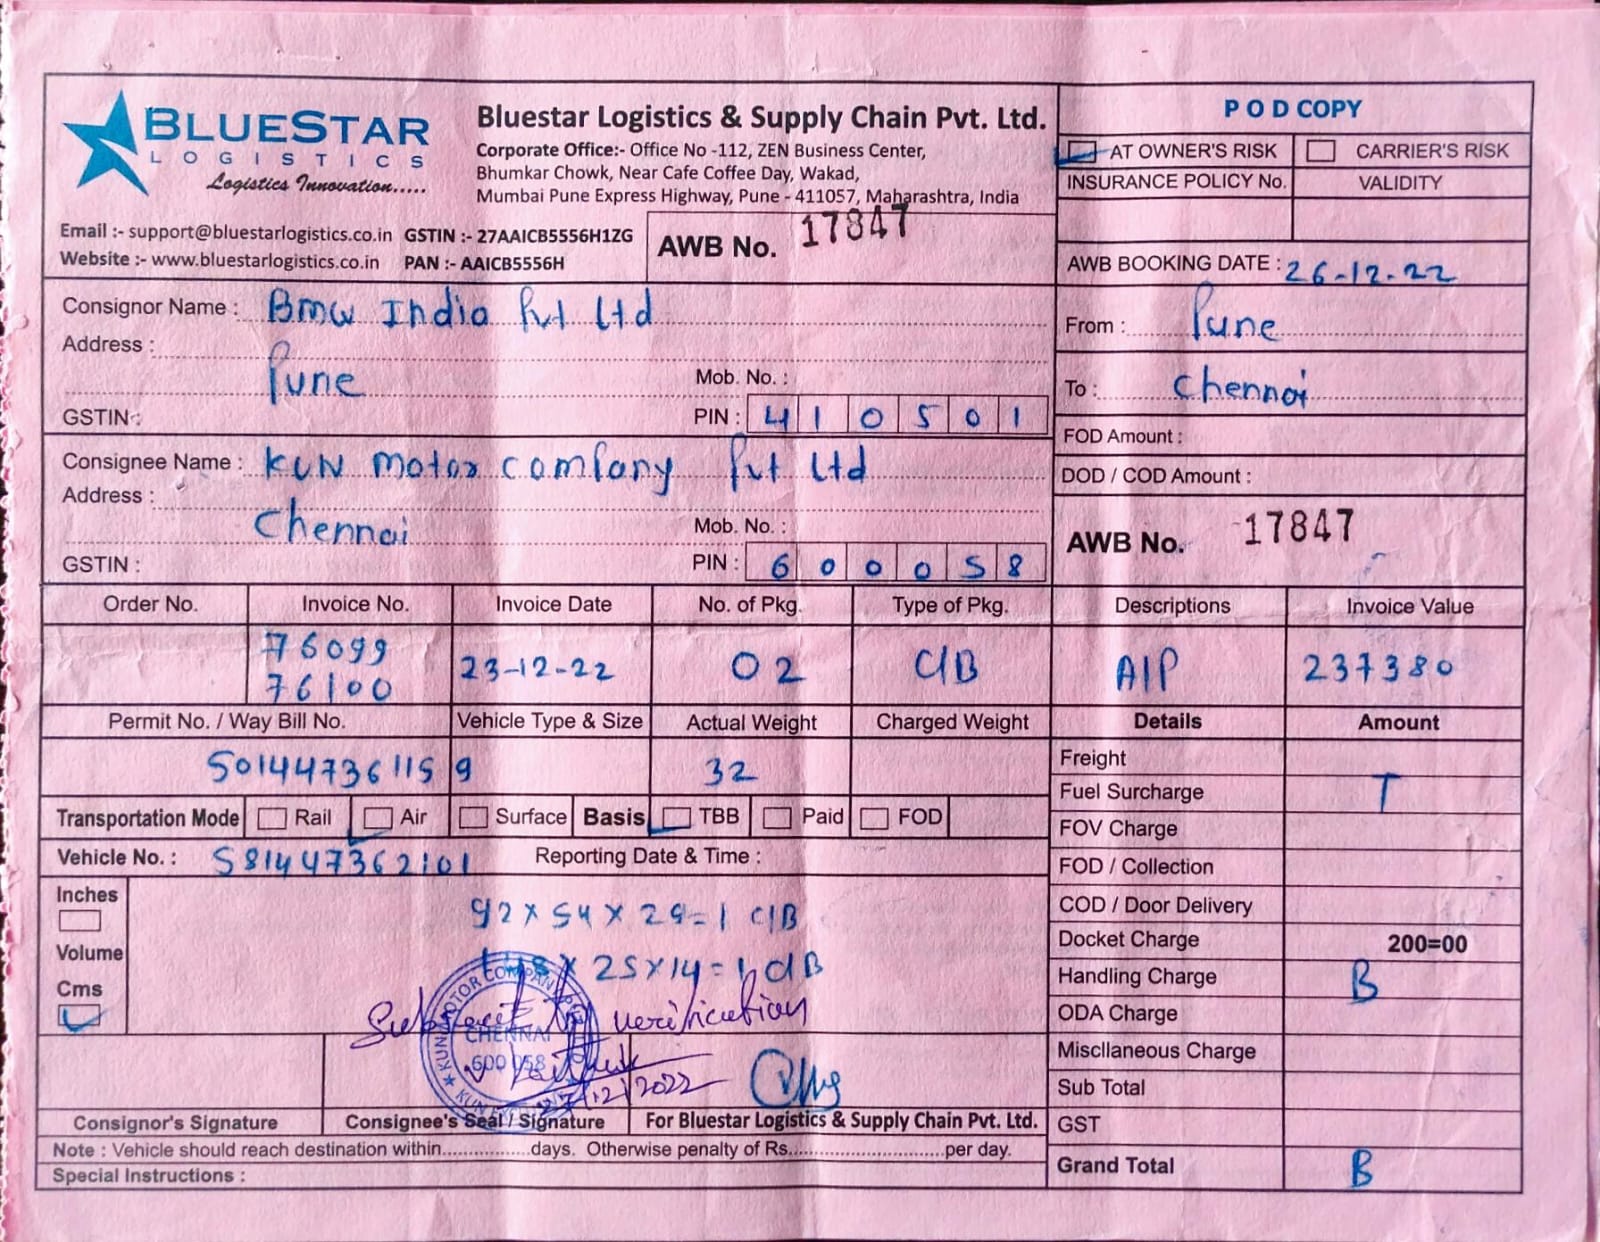 BLUESTAR
LOGISTICS
Logistics Innovation.....
Bluestar Logistics & Supply Chain Pvt. Ltd.
Corporate Office:- Office No -112, ZEN Business Center,
Bhumkar Chowk, Near Cafe Coffee Day, Wakad,
Mumbai Pune Express Highway, Pune - 411057, Maharashtra, India
Email :- support@bluestarlogistics.co.in GSTIN :- 27AAICB5556H1ZG
Website :- www.bluestarlogistics.co.in PAN :- AAICB5556H
AWB No. 17847
POD COPY
AT OWNER'S RISK CARRIER'S RISK
INSURANCE POLICY No. VALIDITY
AWB BOOKING DATE : 26-12-22
Consignor Name : BMW India Pvt Ltd
Address :
Pune
Mob. No. :
GSTIN : PIN : 410501
From : Pune
To : Chennai
FOD Amount :
DOD / COD Amount :
Consignee Name : KUN Motor Company Pvt Ltd
Address :
Chennai
Mob. No. :
GSTIN : PIN : 600058
AWB No. 17847
Order No. Invoice No. Invoice Date No. of Pkg. Type of Pkg. Descriptions Invoice Value
76099
76100 23-12-22 02 C/B A/P 237380
Permit No. / Way Bill No. Vehicle Type & Size Actual Weight Charged Weight Details Amount
501447361159 32
Transportation Mode Rail Air Surface Basis TBB Paid FOD
Vehicle No. : 581447362101 Reporting Date & Time :
Inches
Volume
Cms
92 x 54 x 29 = 1 C/B
x 25 x 14 = 1 C/B
Subject to verification
27/12/2022
KUN MOTOR COMPANY
CHENNAI
600 058
Freight
Fuel Surcharge T
FOV Charge
FOD / Collection
COD / Door Delivery
Docket Charge 200=00
Handling Charge B
ODA Charge
Miscllaneous Charge
Sub Total
GST
Grand Total B
Consignor's Signature Consignee's Seal / Signature For Bluestar Logistics & Supply Chain Pvt. Ltd.
Note : Vehicle should reach destination within................days. Otherwise penalty of Rs............................per day.
Special Instructions :